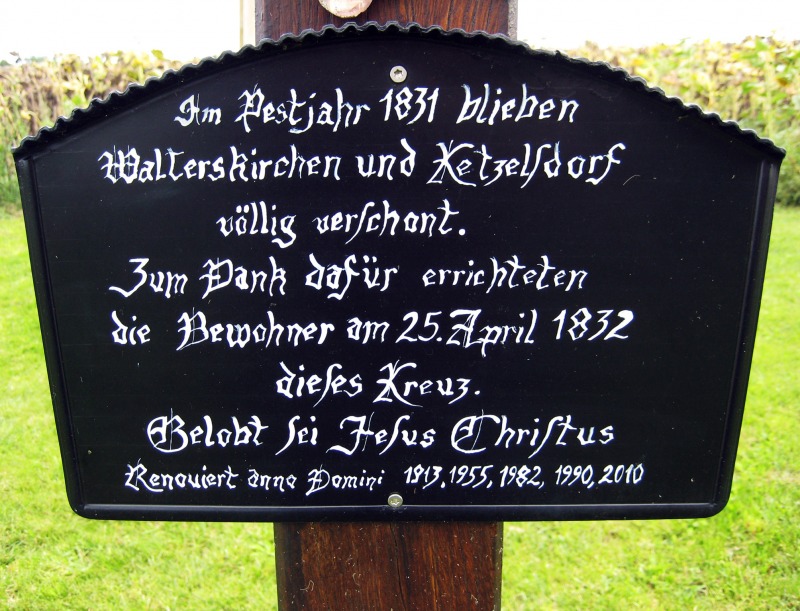 Im Pestjahr 1831 blieben
Walterskirchen und Ketzelſdorf
völlig verſchont.
Zum Dank dafür errichteten
die Bewohner am 25. April 1832
dieſes Kreuz.
Gelobt ſei Jeſus Chriſtus
Renoviert anno Domini 1913, 1955, 1982, 1990, 2010